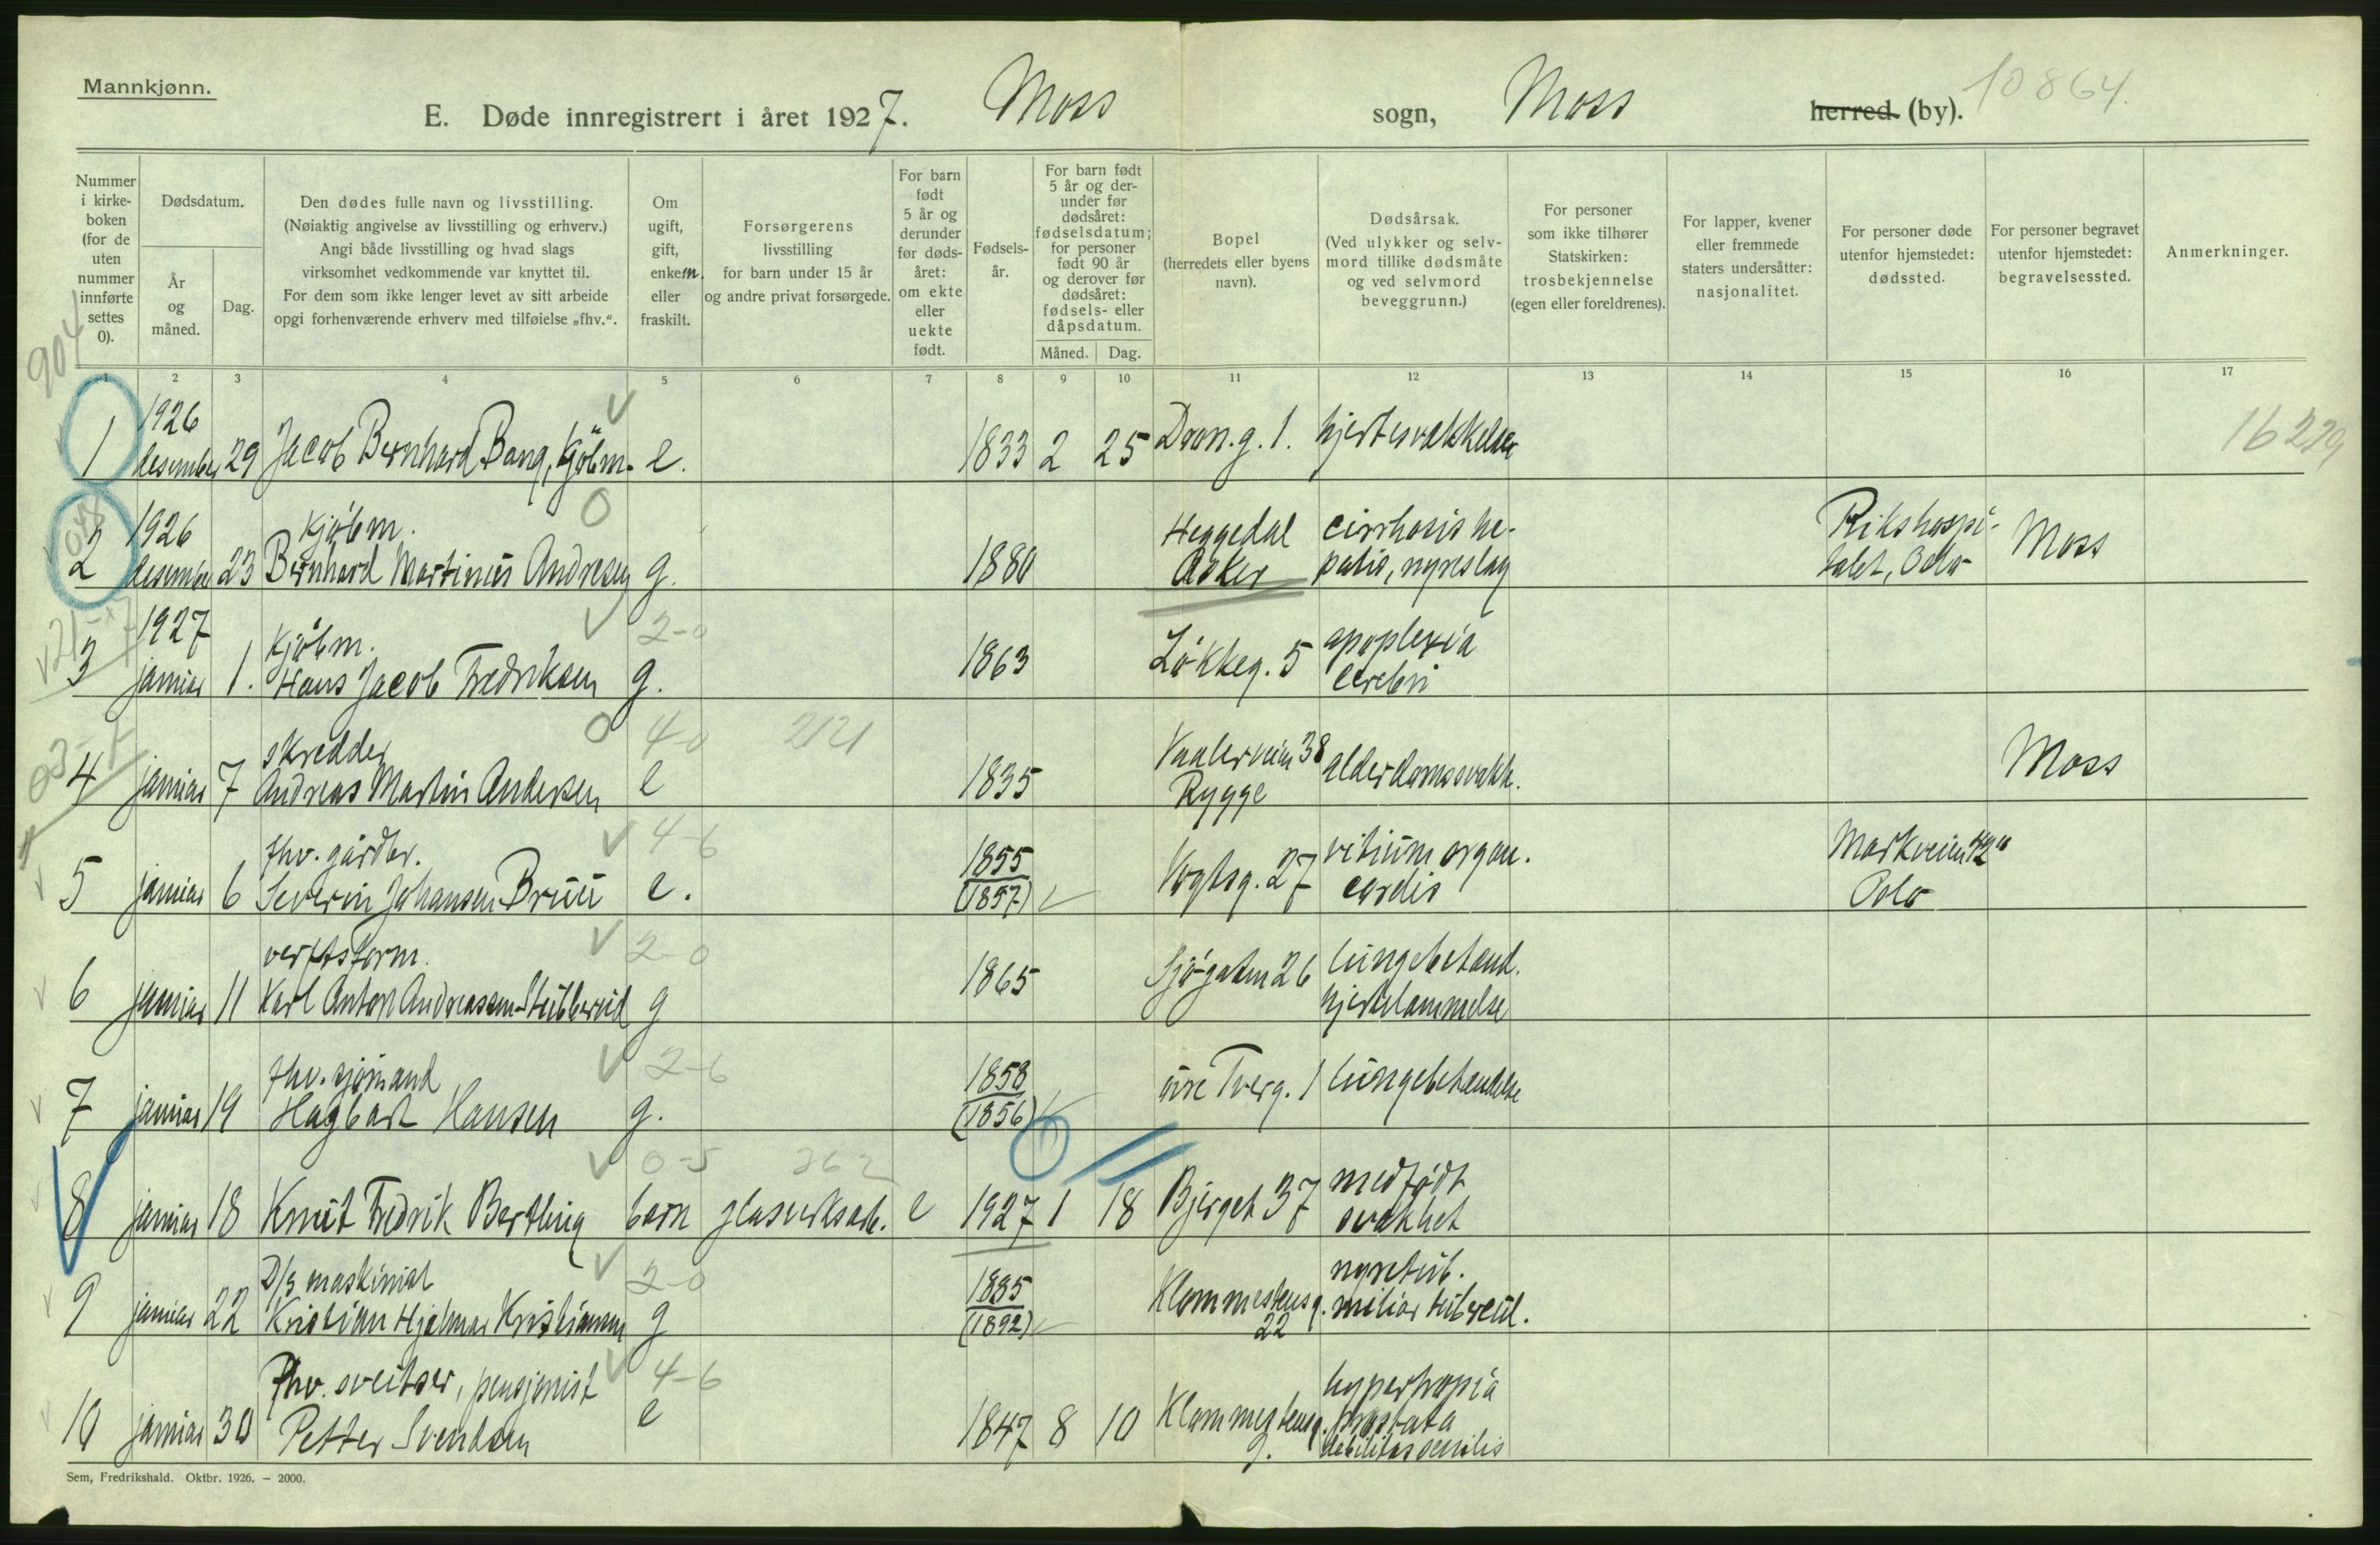 Mannkjønn.
E. Døde innregistrert i året 1927. Moss sogn, Moss herred (by). 10864.
Nummer i kirke-boken (for de uten nummer innførte settes 0).
Dødsdatum.
År og måned.
Dag.
Den dødes fulle navn og livsstilling.
(Nøiaktig angivelse av livsstilling og erhverv.)
Angi både livsstilling og hvad slags
virksomhet vedkommende var knyttet til.
For dem som ikke lenger levet av sitt arbeide
opgi forhenværende erhverv med tilføielse „fhv.“.
Om ugift, gift, enkem. eller fraskilt.
Forsørgerens
livsstilling
for barn under 15 år
og andre privat forsørgede.
For barn født 5 år og derunder før døds-året: om ekte eller uekte født.
Fødsels-år.
For barn født 5 år og der-under før dødsåret: fødselsdatum; for personer født 90 år og derover før dødsåret: fødsels- eller dåpsdatum.
Måned.
Dag.
Bopel
(herredets eller byens
navn).
Dødsårsak.
(Ved ulykker og selv-
mord tillike dødsmåte
og ved selvmord
beveggrunn.)
For personer
som ikke tilhører
Statskirken:
trosbekjennelse
(egen eller foreldrenes).
For lapper, kvener
eller fremmede
staters undersåtter:
nasjonalitet.
For personer døde
utenfor hjemstedet:
dødssted.
For personer begravet
utenfor hjemstedet:
begravelsessted.
Anmerkninger.
904
1 2 3 4 5 6 7 8 9 10 11 12 13 14 15 16 17
1926
1 desember 29 Jacob Bernhard Bang, kjøbm. e. 1833 2 25 Dron.g. 1. hjertesvekkelse 16229
1926 kjøbm. Heggedal cirrhosis he- Rikshospi-
2 desember 23 Bernhard Martinus Andresen g. 1880 Asker patis, nyreslag talet, Oslo Moss
1927 kjøbm. 2-0 apoplexia
3 januar 1. Hans Jacob Fredriksen g. 1863 Løkkeg. 5 cerebri
skredder 4-0 2121 Vaalerveien 38
4 januar 7 Andreas Martin Andersen e 1835 Rygge alderdomssvakk. Moss
fhv. gårdbr. 4-6 1855 vitium organ. Markveien 42
5 januar 6 Severin Johansen Bruu e. (1857) Vogtsg. 27 cordis Oslo
verftsform. 2-0 lungebetend.
6 januar 11 Karl Anton Andreassen-Stubberud g 1865 Sjøgaten 26 hjertelammelse
fhv. sjømand 2-6 1858
7 januar 19 Hagbart Hansen g. (1856) øvre Tverg. 1 lungebetendelse
0-5 262 medfødt
8 januar 18 Knut Fredrik Berthling barn glasverksarb. e 1927 1 18 Bjerget 37 svakhet
D/s maskinist 2-0 1885 nyretub.
9 januar 22 Kristian Hjalmar Kristiansen g (1892) Klommestensg. 22 miliær tubercul.
Fhv. sveitser, pensjonist 4-6 hypertropia
10 januar 30 Petter Svendsen e 1847 8 10 Klommestensg. 9. prostata
debilitas senilis
Sem, Fredrikshald. Oktbr. 1926. – 2000.